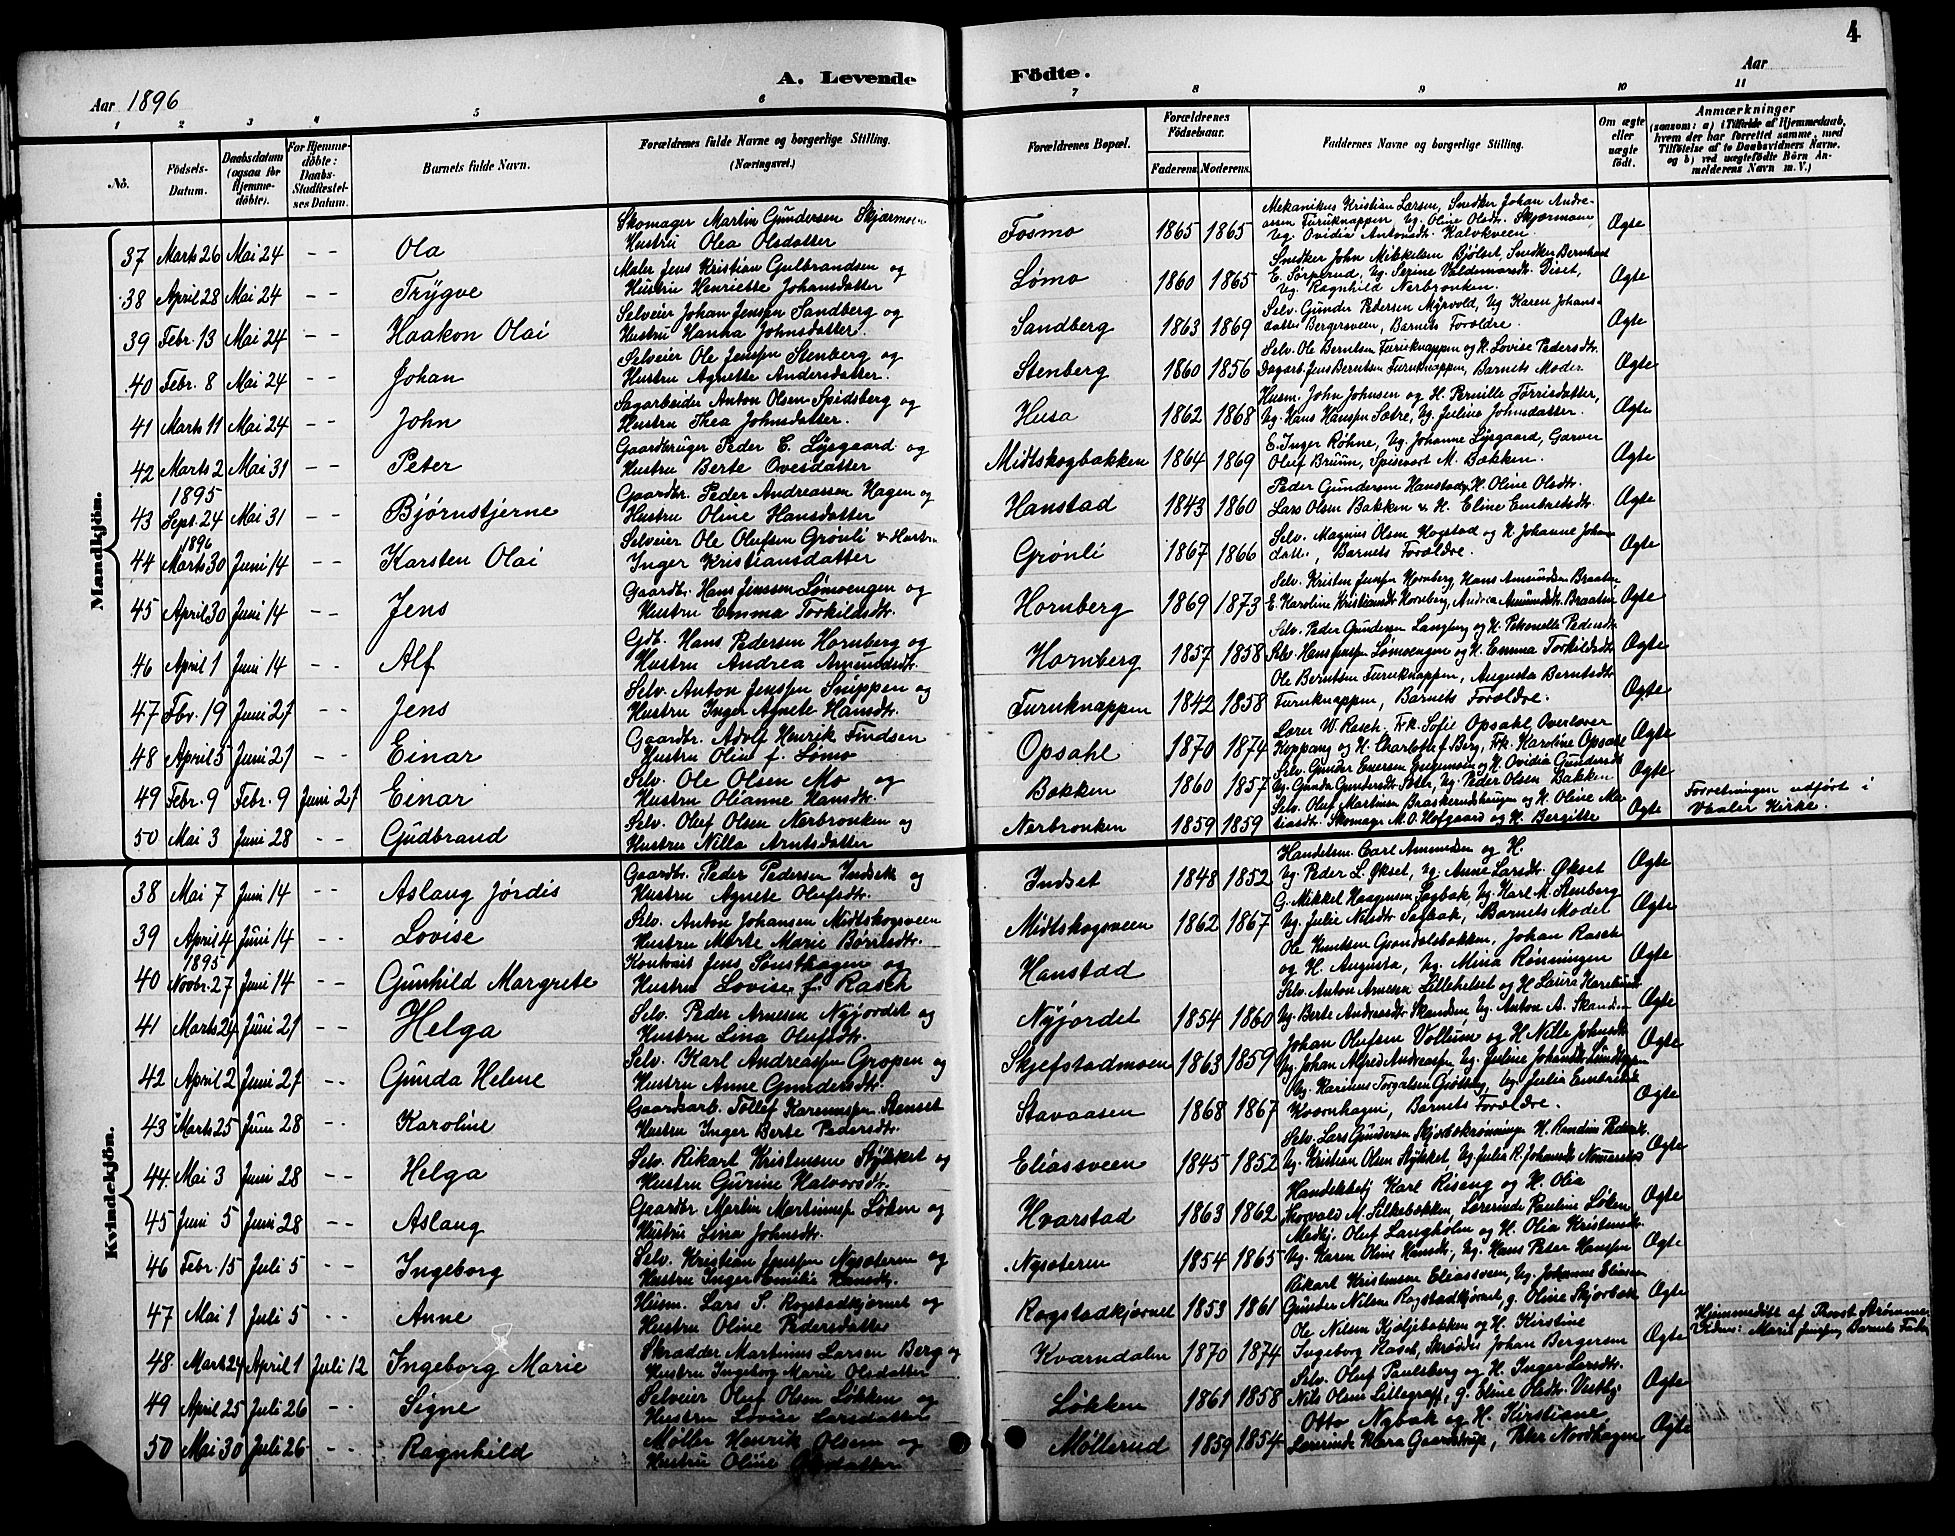 4
A. Levende Födte.
Aar 1896
Aar
1 2 3 4 5 6 7 8 9 10 11
No.
Födsels-Datum.
Daabsdatum (ogsaa for Hjemmedöbte).
For Hjemmedöbte: Daabs-Stadfestelses Datum.
Barnets fulde Navn.
Forældrenes fulde Navne og borgerlige Stilling. (Næringsvei.)
Forældrenes Bopæl.
Forældrenes Födselsaar.
Faderens. Moderens.
Faddernes Navne og borgerlige Stilling.
Om ægte eller uægte födt.
Anmærkninger
(saasom: a) i Tilfælde af Hjemmedaab, hvem der har forrettet samme, med Tilföielse af to Daabsvidners Navne, og b) ved uægtefödte Börn Anmelderens Navn m. V.)
Mandkjön.
37 Marts 26 Mai 24 - - Ola Skomager Martin Gundersen Skjærmoen Hustru Olea Olsdatter Fosmo 1865 1865 Mekanikus Kristian Larsen, Snedker Johan Andreassen Furuknappen, Ug. Oline Olsdtr. Skjærmoen, Ug. Ovidia Antonsdtr. Kalvkveen Ægte
38 April 28 Mai 24 - - Trygve Maler Jens Kristian Gulbrandsen og Hustru Henriette Johansdatter Lømo 1860 1865 Snedker John Mikkelsen Bjølset, Snedker Bernhard E. Sorperud, Ug. Serine Valdemarsdt. Diset, Ug. Ragnhild Nerbronken. Ægte
39 Febr. 13 Mai 24 - - Haakon Olai Selveier Johan Jenssen Sandberg og Hustru Hanna Johnsdatter. Sandberg 1863 1869 Selv. Gunder Pedersen Myrvold, Ug Karen Johansdatter Bergersveen, Barnets Forældre. Ægte
40 Febr. 8 Mai 24 - - Johan Selveier Ole Jenssen Stenberg og Hustru Agnette Andersdatter. Stenberg 1860 1856 Selv. Ole Berntsen Furuknappen og H. Lovise Pedersdtr. Dagarb. Jens Berntsen Furuknappen, Barnets Moder Ægte
41 Marts 11 Mai 24 - - John Sagarbeider Anton Olsen Spidsberg og Hustru Thea Johnsdatter. Husa 1862 1868 Husm. John Johnsen og H. Pernille Tørrisdatter, Ug. Hans Hansen Sætre, Ug. Juline Johnsdatter. Ægte
42 Marts 2 Mai 31 - - Peter Gaardbruger Peder C. Lysgaard og Hustru Berte Ovesdatter Midtskogbakken 1864 1869 E. Inger Røhne, Ug. Johanne Lysgaard, Garver Oluf Bruun, Spisevært M. Bakken. Ægte
43 1895 Sept. 24 Mai 31 - - Bjørnstjerne Gaardbr. Peder Andreassen Hagen og Hustru Oline Hansdatter Hanstad 1843 1860 Peder Gundersen Hanstad og H. Oline Olsdtr. Lars Olsen Bakken & H. Eline Embretsdtr. Ægte
44 1896 Marts 30 Juni 14 - - Karsten Olai Selveier Ole Olufsen Grønli & Hustru Inger Kristiansdatter Grønli 1867 1866 Selv. Magnus Olsen Hogstad og H. Johanne Johansdatt., Barnets Forældre. Ægte
45 April 30 Juni 14 - - Jens Gaardbr. Hans Jenssen Lømoengen og Hustru Emma Torkildsdtr. Hornberg 1869 1873 Selv. Kristen Jenssen Hornberg, Hans Amundsen Braaten, E. Karoline Kristiansdt Horneberg, Andrea Amundsdt. Braaten Ægte
46 April 1 Juni 14 - - Alf Gdb. Hans Pedersen Hornberg og Hustru Andrea Amundsdt. Hornberg 1857 1858 Selv. Peder Gundersen Langberg og H. Petronelle Pedersdt. Selv. Hans Jenssen Lømoengen og H. Emma Torkildsdt. Ægte
47 Fbr. 19 Juni 21 - - Jens Selv. Anton Jenssen Snippen og Hustru Inger Agnete Hansdtr. Furuknappen 1842 1858 Ole Berntsen Furuknappen, Augusta Berntsdt. Furuknappen, Barnets Forældre. Ægte
48 April 5 Juni 21 - - Einar Gaardbr. Adolf Henrik Findsen Hustru Oline f. Lømo Opsahl 1870 1874 Lærer W. Rasch, Frk. Sofie Opsahl, Overlærer Koppang og H. Charlotte f Berg, Frk. Karoline Opsahl Ægte
49 Febr. 9 Febr. 9 Juni 21 Einar Selv. Ole Olsen Mo og Hustru Olianne Hansdtr. Bakken 1860 1857 Selv. Gunder Evensen og H. Ovidia Gundersdt. Ug. Gunda Gundersdt. Sæter, Ug. Peder Olsen Bakken Ægte
50 Mai 3 Juni 28 - - Gudbrand Selv. Oluf Olsen Nerbronken og Hustru Nilla Arntsdatter Nerbronken 1859 1859 Selv. Oluf Martinsen Braskerudshaugen og H. Oline Matiasdt. Skomager M. O. Hofgaard og H. Bergitte Ægte Forretningen udført i Vaaler Kirke.
Kvindekjön.
38 Mai 7 Juni 14 - - Aslaug Jørdis Gaardbr. Peder Pedersen Indset og Hustru Agnete Olufsdt. Indset 1848 1852 Handelsm. Carl Amundsen og H. Ug. Peder L. Økset, Ug. Anne Larsdt. Økset Ægte
39 April 4 Juni 14 - - Lovise Selv. Anton Johansen Midtskogsveen Hustru Marte Marie Børrilsdt. Midtskogsveen 1862 1867 G. Mikkel Haagensen Sagbak, Ug. Karl M. Stenberg Ug. Julie Nilsdt. Sagbak, Barnets Moder Ægte
40 1895 Novbr. 27 Juni 14 - - Gunhild Margrete Kontorist Jens Sønsthagen og Hustru Lovise f. Rasch Hanstad Ole Knutsen Grøndalsbakken, Johan Rasch og H. Augusta, Ug. Mina Rønningen Ægte
41 Marts 24 Juni 21 - - Helga Selv. Peder Arnesen Nyjordet og Hustru Lina Olufsdt. Nyjordet 1854 1860 Selv. Anton Arnesen Lillehelset og H. Laura Ug. Berte Andreasdt. Skanden, Ug. Anton A. Skanden Ægte
42 April 2 Juni 21 - - Gunda Helene Selv. Karl Andreassen Gropen og Hustru Anne Gundersdt. Skjefstadmoen 1863 1859 Johan Olufsen Vollum og H Nille Johnsdt. Ug. Johan Alfred Andreassen, Ug. Juline Johansdt. Ægte
43 Marts 25 Juni 28 - - Karoline Gaardsarb. Tollef Karenussen Stenset Hustru Inger Berte Pedersdt. Stavaasen 1868 1867 Ug. Karinus Torgalsen, Ug. Julia Embretsdt Kvoernhagen, Barnets Forældre. Ægte
44 Mai 3 Juni 28 - - Helga Selv. Rikart Kristensen Stykket og Hustru Gurine Halvorsdt. Eliassveen 1845 1852 Selv. Lars Gundersen Skjærbækrønningen H. Randine Pedersdt. Ug. Kristian Olsen Stykket, Ug. Julia R. Johansdt. Ægte
45 Juni 5 Juni 28 - - Aslaug Gaardbr Martin Martinusen Løken og Hustru Lina Johnsdt. Hvarstad 1863 1862 Handelsbetj. Karl Riseng og H. Olia Thorvald M. Silkebækken, Lærerinde Pauline Løken Ægte
46 Febr. 15 Juli 5 - - Ingeborg Selv. Kristian Jenssen Nysæteren og Hustru Inger Emilie Hansdt. Nysæteren 1854 1865 Medhj. Oluf Langholen og H. Olia Kristensdt. Ug. Karen Oline Hansdt., Ug. Hans Peter Hansen Ægte
47 Mai 1 Juli 5 - - Anne Husm. Lars S. Rogstadkjærnet og Hustru Oline Pedersdatter Rogstadkjærnet 1853 1861 Rikart Kristensen Eliassveen, Ug. Johannes Eliasen Gunder Nilsen Rogstadkjærnet, g. Oline Skjærbæk Ægte
48 Marts 24 April 1 Juli 12 Ingeborg Marie Skrædder Martinus Larsen Berg og Hustru Ingeborg Marie Olsdatter Kværndalen 1870 1874 Ole Nilsen Kjøljebakken og H. Kirstine Ingeborg Raset, Skrædder Johan Bergersen Ægte Hjemmedøbt af Provst Strømme. Vidner: Marie Jensen, Barnets Fader
49 April 25 Juli 26 - - Signe Selveier Oluf Olsen Løkken og Hustru Lovise Larsdatter Løkken 1861 1858 Selv. Oluf Paulsberg og H. Inger Larsdt. Nils Olsen Lillegraff, g. Eline Olsdt. Vestby Ægte
50 Mai 30 Juli 26 - - Ragnhild Møller Henrik Olsen og Hustru Oline Olsdatter Møllerud 1859 1854 Otto Nybak og H. Kirstiane Laurinde Mæra, Peter Nordhagen Ægte